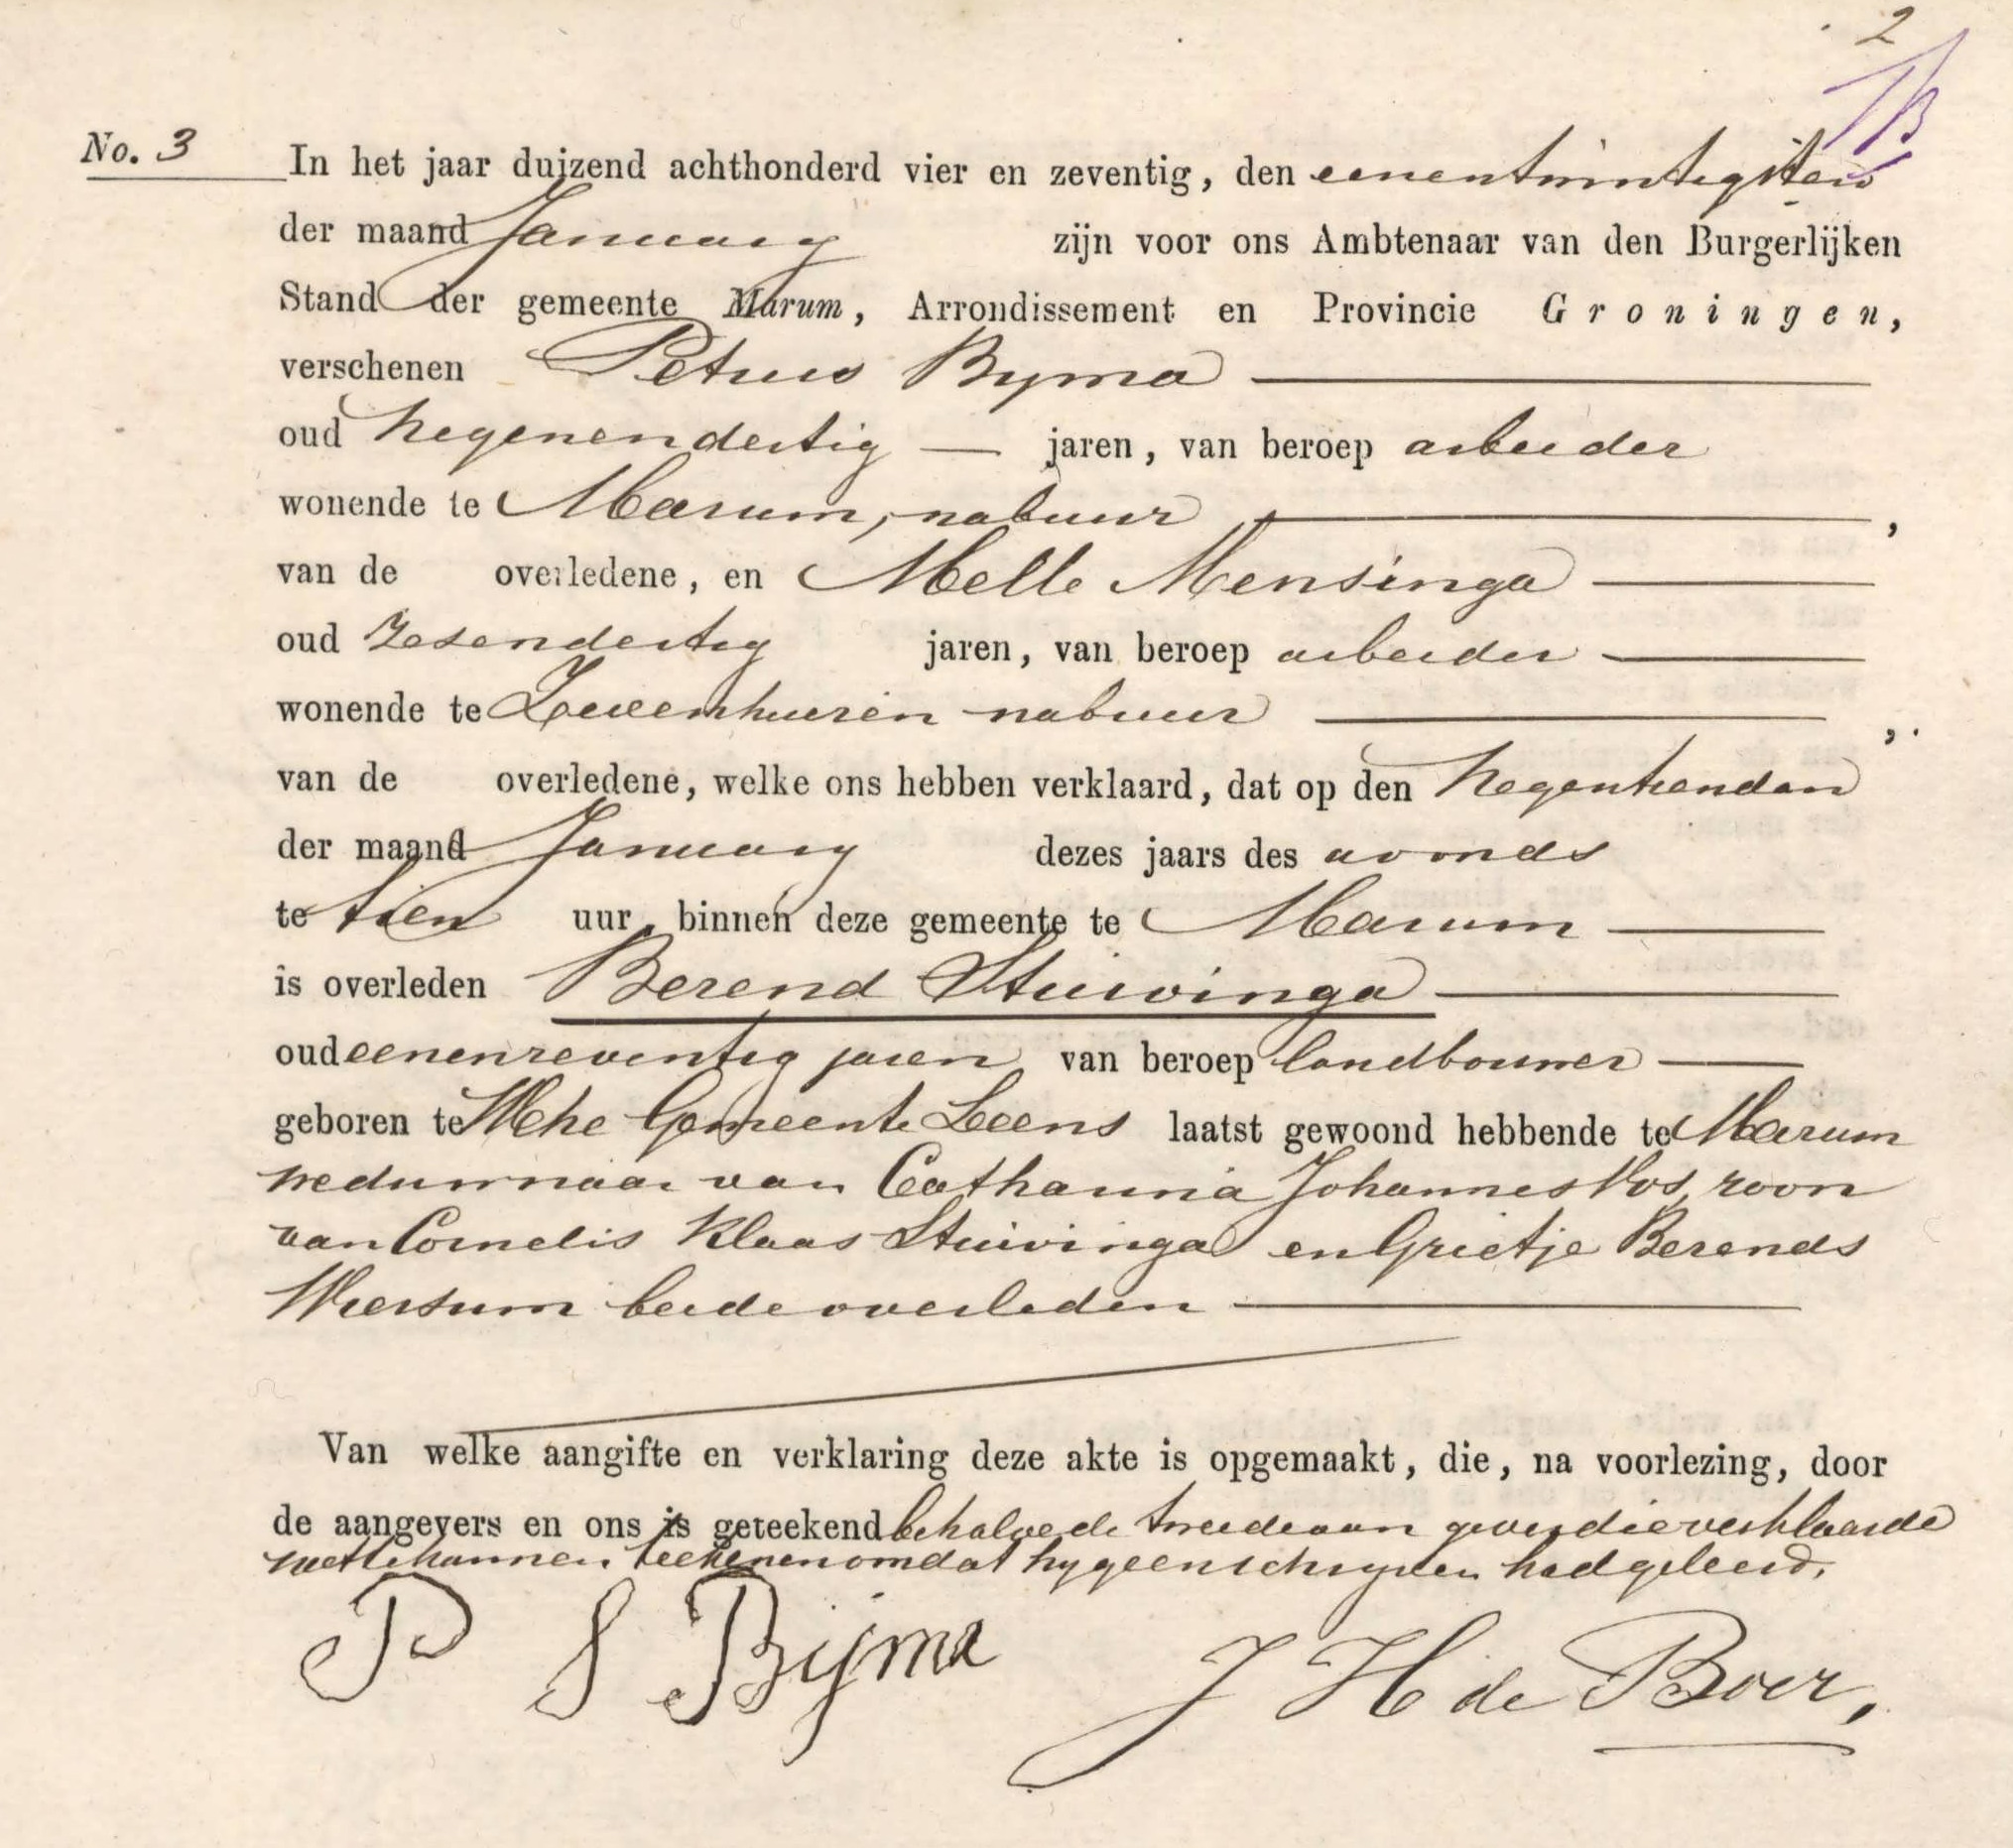 2
No. 3 In het jaar duizend achthonderd vier en zeventig, den eenentwintigsten
der maand January zijn voor ons Ambtenaar van den Burgerlijken
Stand der gemeente Marum, Arrondissement en Provincie Groningen,
verschenen Petrus Byma
oud negenendertig jaren, van beroep arbeider
wonende te Marum, nabuur ,
van de overledene, en Melle Mensinga
oud zesendertig jaren, van beroep arbeider
wonende te nabuur ,
van de overledene, welke ons hebben verklaard, dat op den negentienden
der maand January dezes jaars des avonds
te tien uur, binnen deze gemeente te Marum
is overleden Berend Stuivinga
oud eenenzeventig jaren van beroep landbouwer
geboren te Wehe Gemeente Leens laatst gewoond hebbende te Marum
weduwnaar van Catharina Johannes Vos, zoon
van Cornelis Klaas Stuivinga en Grietje Berends
Wiersum beide overleden
Van welke aangifte en verklaring deze akte is opgemaakt, die, na voorlezing, door
de aangevers en ons is geteekend behalve de tweede aangever die verklaarde
niet te kunnen teekenen omdat hy geen schryven had geleerd.
P S Bijma J H de Boer,